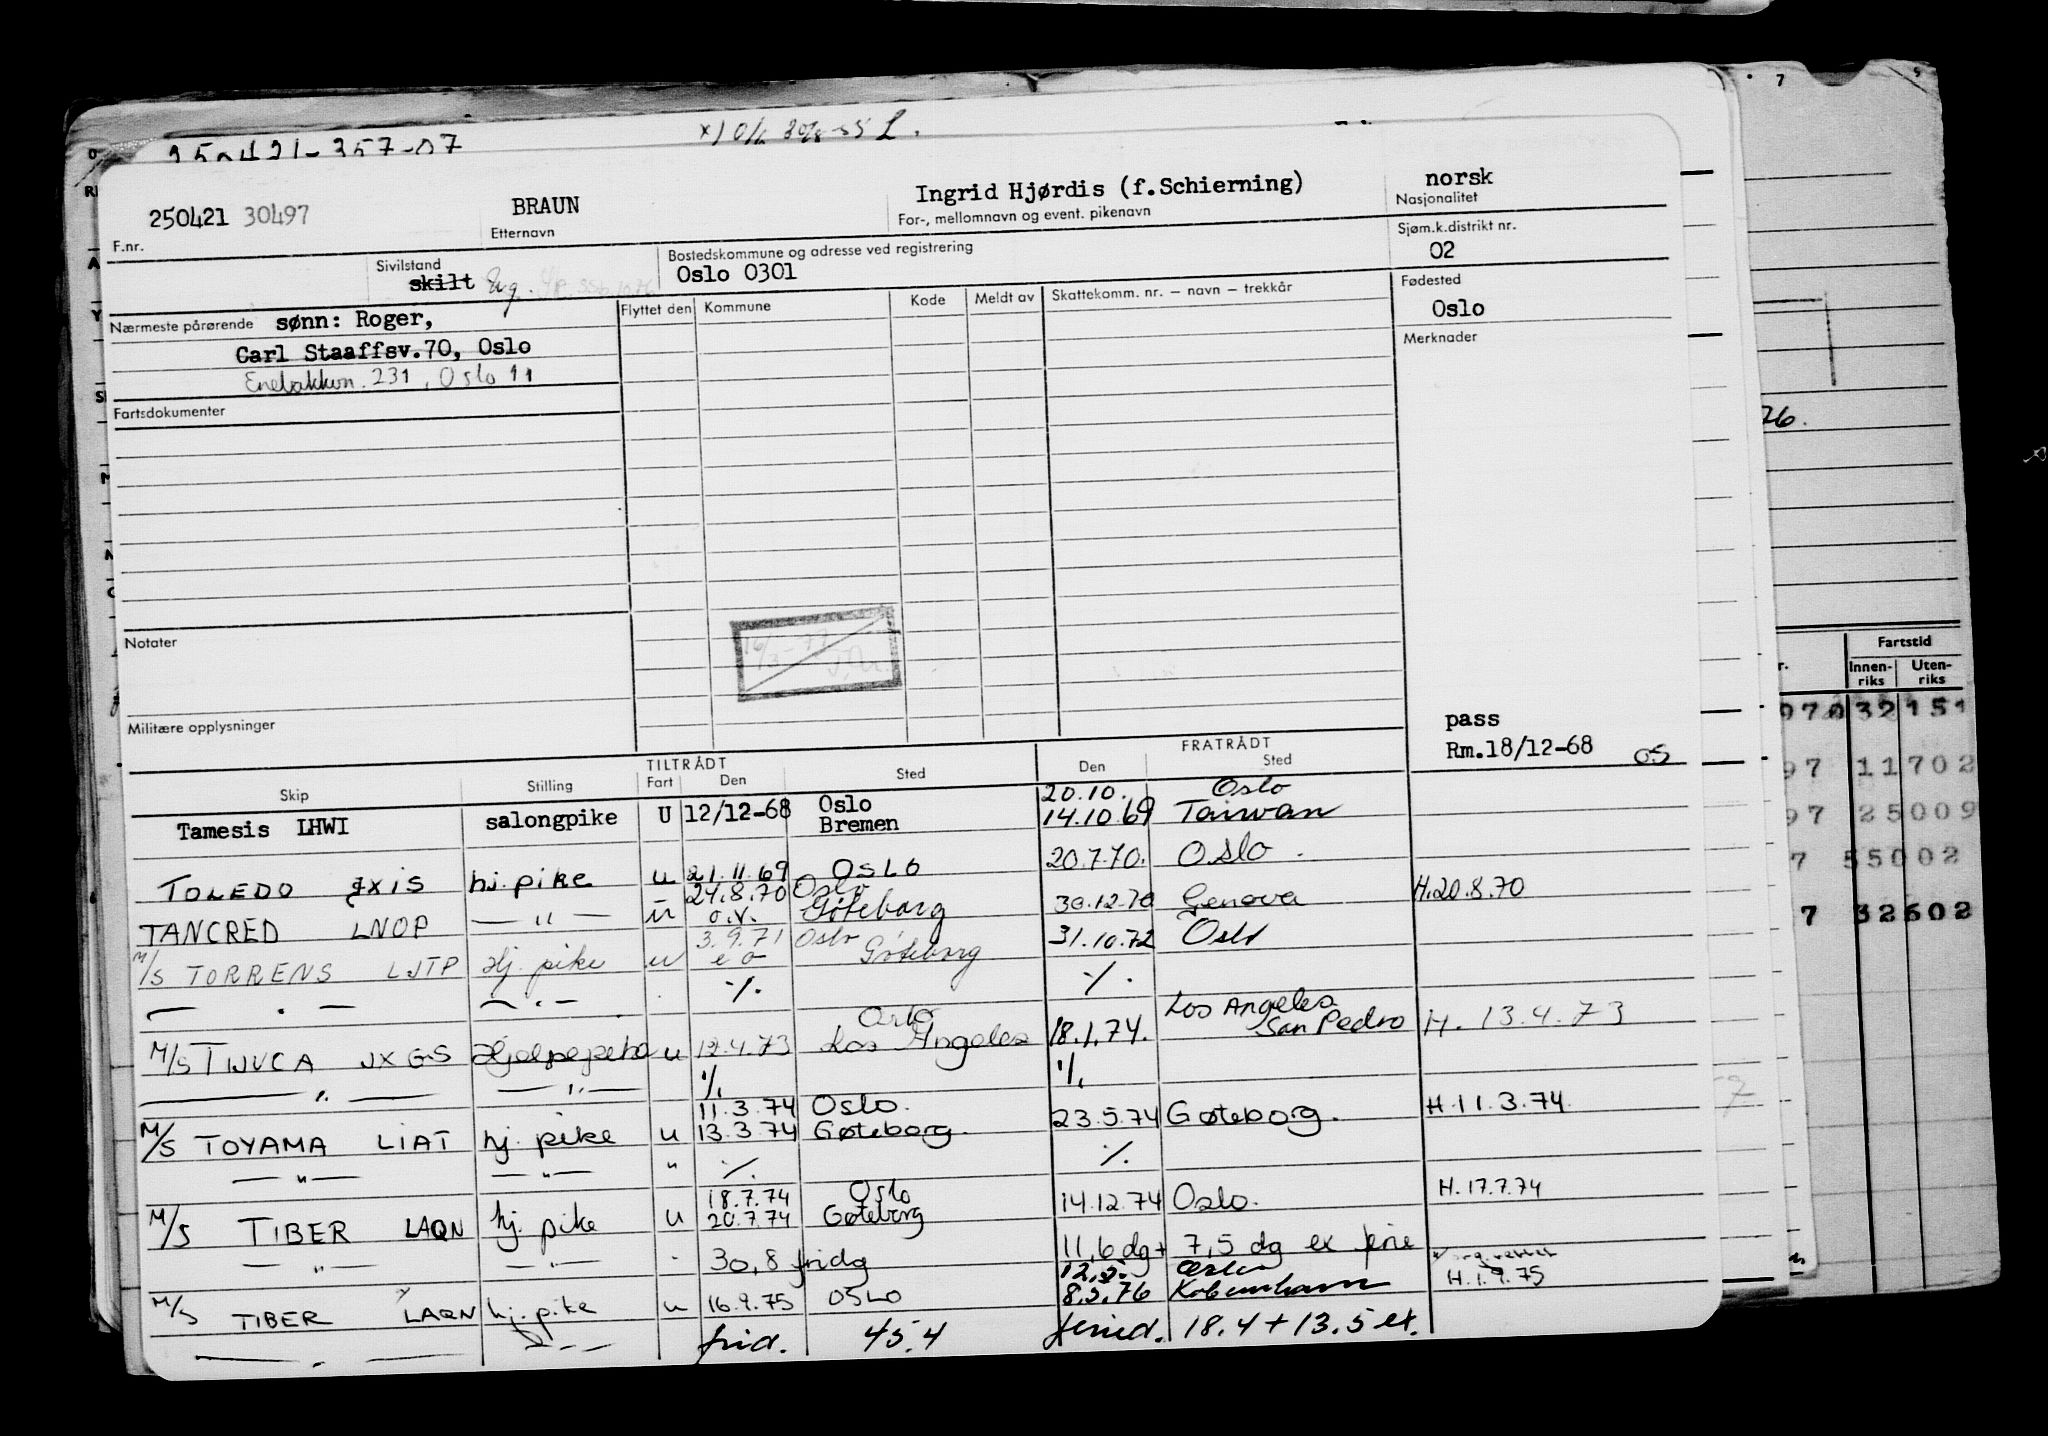 250421-357-07
250421 30497 BRAUN Ingrid Hjørdis (f.Schierning) norsk
F.nr. Etternavn For-, mellomnavn og event. pikenavn Nasjonalitet
Sivilstand Bostedskommune og adresse ved registrering Sjøm.k.distrikt nr.
skilt Oslo 0301 02
Nærmeste pårørende sønn: Roger, Flyttet den Kommune Kode Meldt av Skattekomm. nr. – navn – trekkår Fødested
Oslo
Carl Staaffsv.70, Oslo Merknader
Enebakkvn. 231, Oslo 11
Fartsdokumenter
Notater
16/3-77
Militære opplysninger
pass
Rm.18/12-68 05
TILTRÅDT FRATRÅDT
Skip Stilling Fart Den Sted Den Sted
20.10. Oslo
Tamesis LHWI salongpike U 12/12-68 Oslo Bremen 14.10.69 Taiwan
TOLEDO JXIS hj.pike u 21.11.69 OSLO 20.7.70. Oslo.
24.8.70 Oslo
TANCRED LNOP — " — u o.v. Göteborg 30.12.70 Genova H.20.8.70
3.9.71 Oslo
M/S TORRENS LJTP Hj. pike u e o Göteborg 31.10.72 Oslo
— " — — " — ./. ./.
Oslo Los Angeles
M/S TIJUCA JXGS u 12.4.73 Los Angeles 18.1.74. San Pedro H. 13.4.73
— " — — " — ./. ./.
11.3.74 Oslo.
M/S TOYAMA LIAT hj. pike u 13.3.74 Gøteborg. 23.5.74 Gøteborg. H.11.3.74
— " — — " — " ./. ./.
18.7.74 Oslo
M/S TIBER LAQN hj. pike u 20.7.74 Gøteborg 14.12.74 Oslo. H.17.7.74
— " — — " — 30,8 fridg 11,6 dg + 7,5 dg ex ferie
12.2. Oslo
M/S TIBER LAQN hj.pike u 16.9.75 OSLO 8.2.76 København H.1.9.75
— " — frid. 45.4 feried. 18.4 + 13.5 ex.
76.
Fartstid
Innen-riks Uten-riks
970 32 151
97 11 702
97 25 009
7 55 002
7 32 602